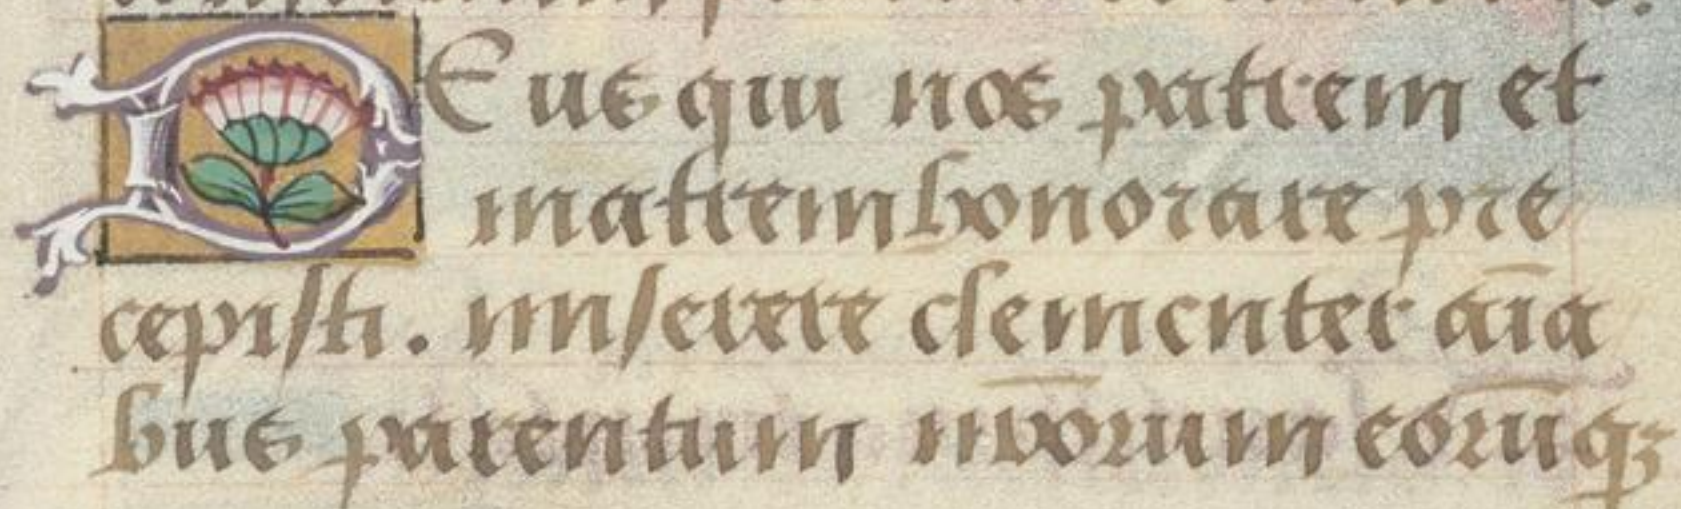 DEus qui nos patrem et
matrem honorare pre
cepisti. miserere clementer aīa
bus parentum nr̄orum eorūqꝫ